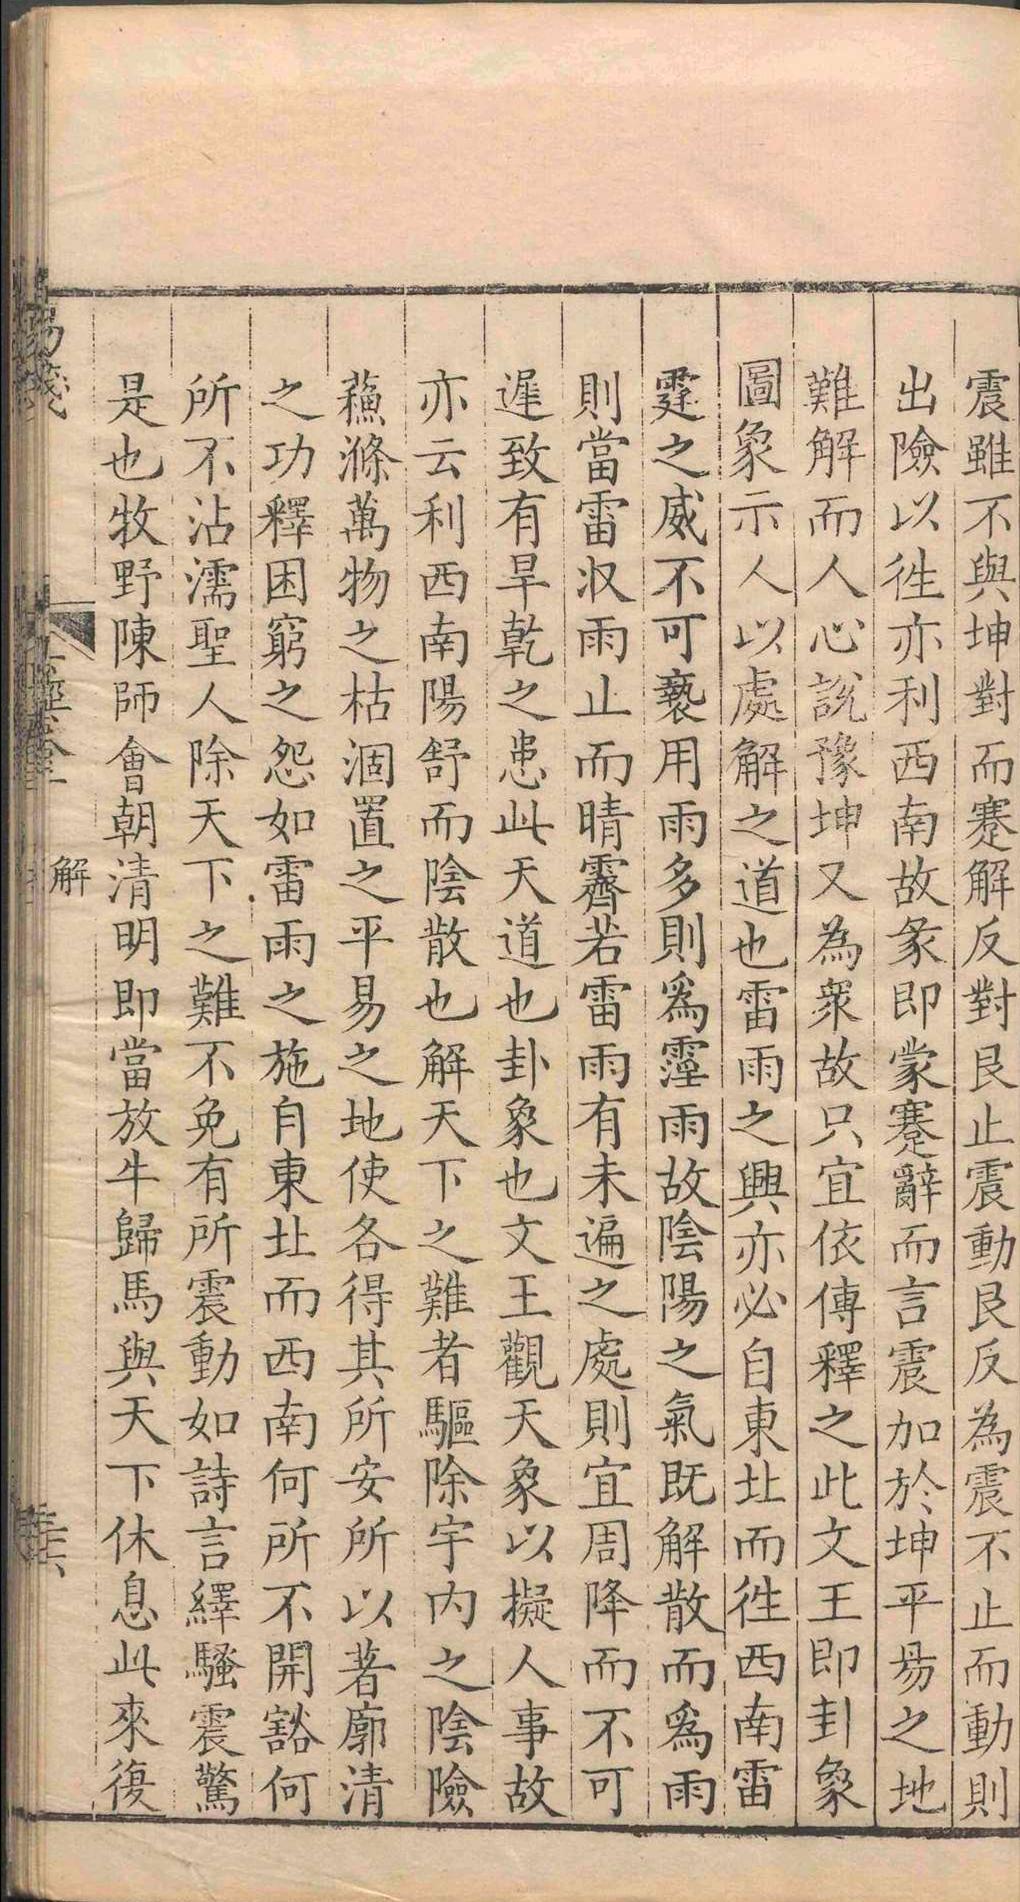 震雖不與坤對而蹇解反對艮止震動艮反為震不止而動則
出險以徃亦利西南故彖即蒙蹇辭而言震加於坤平昜之地
難解而人心說豫坤又為衆故只宜依傳釋之此文王即卦象
圖象示人以處解之道也雷雨之興亦必自東北而徃西南雷
霆之威不可䙝用雨多則爲霪雨故陰陽之氣既解散而爲雨
則當雷収雨止而晴霽若雷雨有未遍之處則宜周降而不可
遲致有旱乾之患此天道也卦象也文王觀天象以擬人事故
亦云利西南陽舒而陰散也解天下之難者驅除宇内之陰險
蘓滌萬物之枯涸置之平易之地使各得其所安所以著廓清
之功釋困窮之怨如雷雨之施自東北而西南何所不開豁何
所不沾濡聖人除天下之難不免有所震動如詩言繹騷震驚
是也牧野陳師會朝清明即當放牛歸馬與天下休息此來復
解